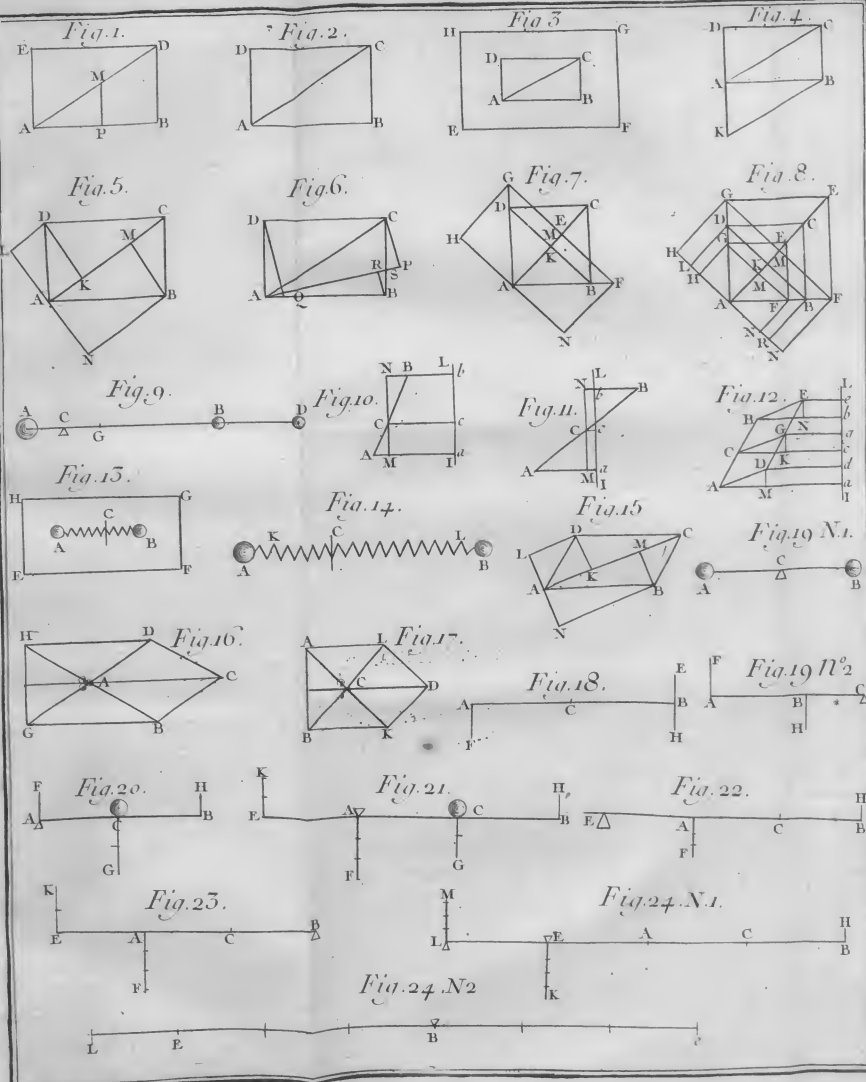 Fig.1.
E D M A P B
Fig.2.
D C A B
Fig 3
H G D C A B E F
Fig.4.
D C A B K
Fig.5.
D C M L K A B N
Fig.6.
D C R P S A Q B
Fig.7.
G D E C H M K A B F N
Fig.8.
G E D C G E H L M H L M A F B F N R N
Fig.9.
A C G B D
Fig.10.
N B L b C c A M I a
Fig.11.
L N b B C c A M a I
Fig.12.
L E e B N b G a C K c D d A M a I
Fig.13.
H G C A B E F
Fig.14.
K C L A B
Fig.15
D C L M K A B N
Fig.19 N.1.
C A B
Fig.16
H D A C G B
Fig.17.
A L C D B K
Fig.18.
E A C B F H
Fig.19 No2
F A B C H
Fig.20.
F H A C B G
Fig.21.
K A C H E B F G
Fig.22.
H E A C B F
Fig.23.
K B E A C F
Fig.24.N.1.
M H L E A C B K
Fig.24.N2
L E B e